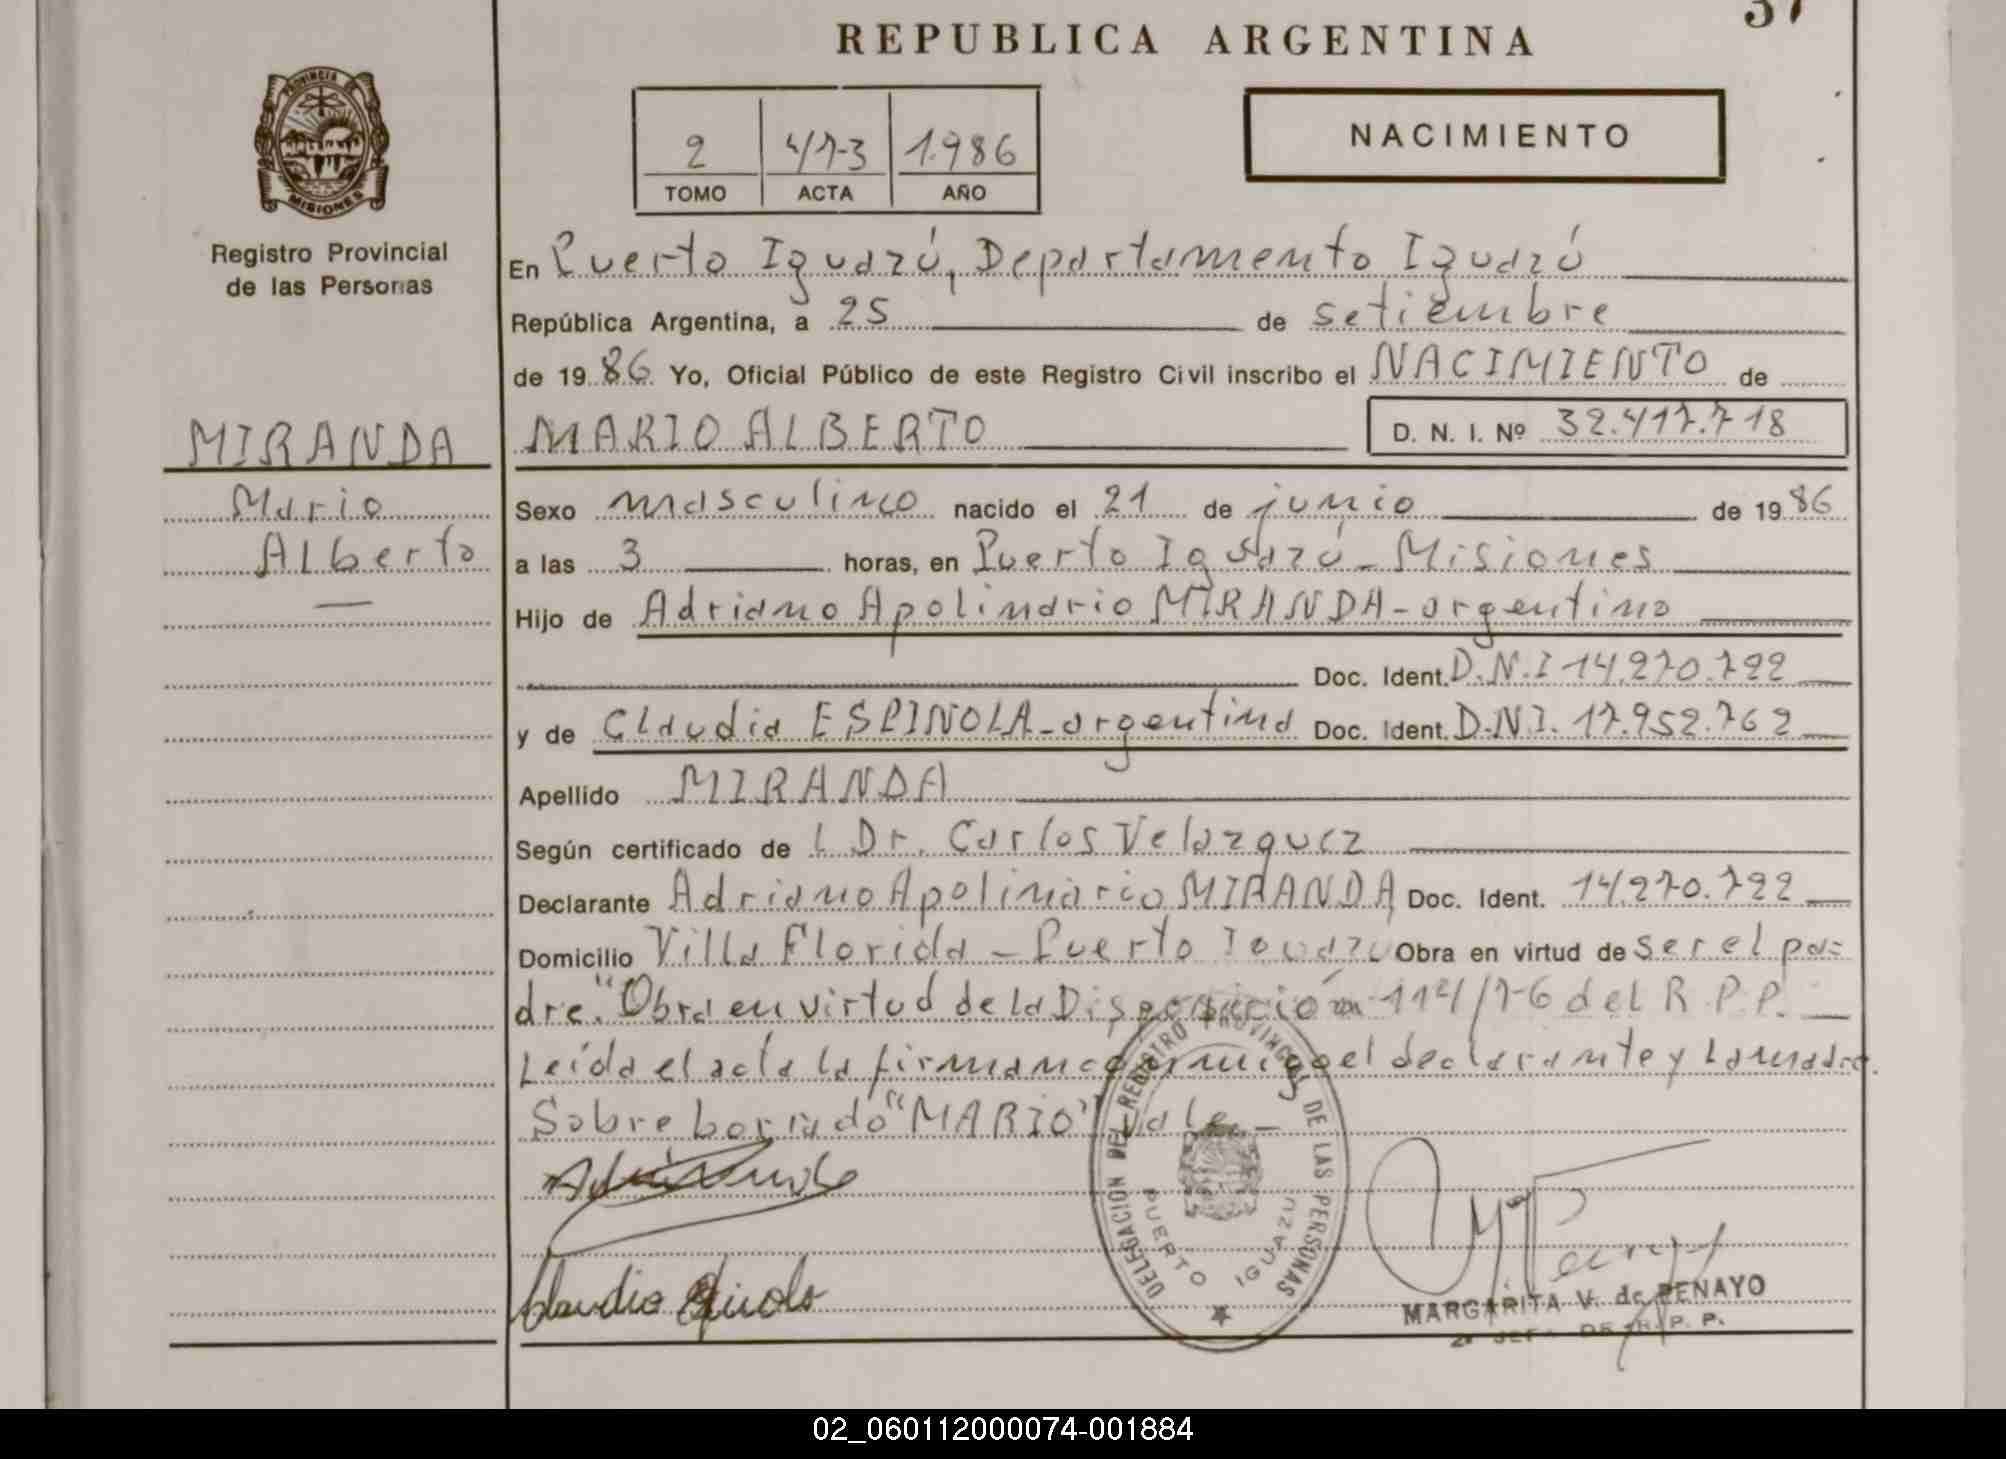 37
REPUBLICA ARGENTINA
PROVINCIA DE
MISIONES
Registro Provincial
de las Personas
2 473 1.986
TOMO ACTA AÑO
NACIMIENTO
En Puerto Iguazú, Departamento Iguazú
República Argentina, a 25 de setiembre
de 1986 Yo, Oficial Público de este Registro Civil inscribo el NACIMIENTO de
MIRANDA
Mario
Alberto
MARIO ALBERTO D. N. I. Nº 32.417.718
Sexo masculino nacido el 21 de junio de 1986
a las 3 horas, en Puerto Iguazú - Misiones
Hijo de Adriano Apolinario MIRANDA - argentino
Doc. Ident. D.N.I 14.270.722
y de Claudia ESPINOLA - argentina Doc. Ident. D.N.I. 17.952.762
Apellido MIRANDA
Según certificado de L Dr. Carlos Velazquez
Declarante Adriano Apolinario MIRANDA Doc. Ident. 14.270.722
Domicilio Villa Florida - Puerto Iguazú Obra en virtud de ser el pa=
dre. "Obra en virtud de la Disposición 114/76 del R.P.P.
Leída el acta la firman conmigo el declarante y la madre.
Sobre borrado "MARIO" vale -
Claudia Espinola
DELEGACIÓN DEL REGISTRO PROVINCIAL DE LAS PERSONAS
PUERTO IGUAZU
MARGARITA V. de PENAYO
2º JEF DE R. P. P.
02_060112000074-001884